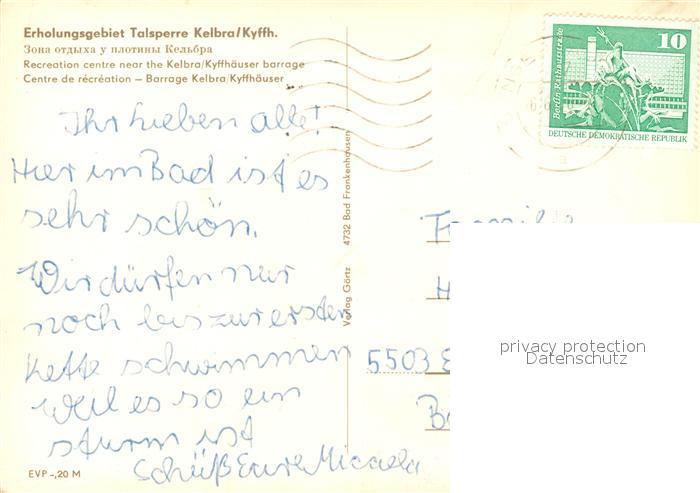 Erholungsgebiet Talsperre Kelbra/Kyffh.
Зона отдыха у плотины Кельбра
Recreation centre near the Kelbra/Kyffhäuser barrage
Centre de récréation – Barrage Kelbra/Kyffhäuser
Ihr lieben alle!
Hier im Bad ist es
sehr schön.
Wir dürfen nur
noch bis zur ersten
Kette schwimmen
weil es so ein
sturm ist
Schüß Eure Micaela
EVP -,20 M
Verlag Görtz 4732 Bad Frankenhausen
10
Berlin, Rathausstraße
DEUTSCHE DEMOKRATISCHE REPUBLIK
Familie
5503
privacy protection
Datenschutz